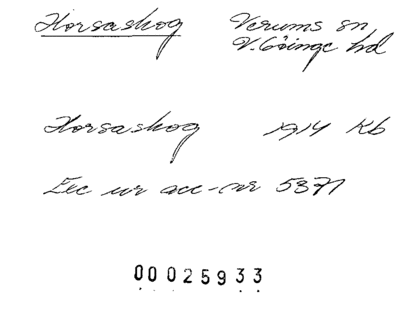 Horsaskog Verums sn
V. Göinge hd
Horsaskog 1914 Kb
Exc ur acc-nr 5371
00025933